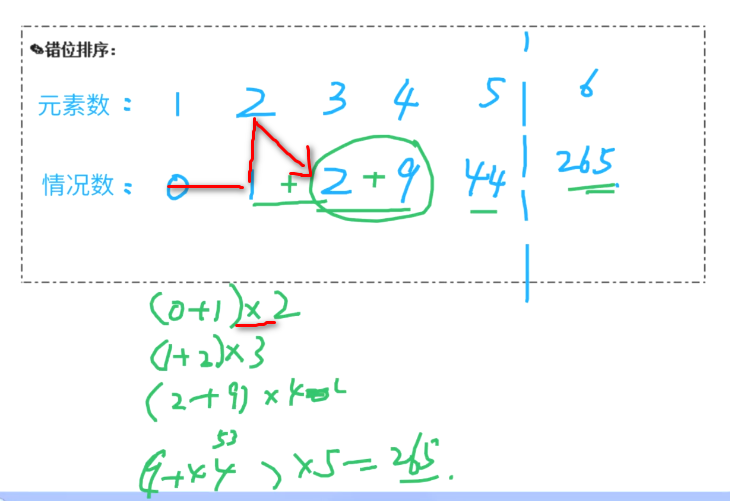 错位排序：
元素数： 1 2 3 4 5 6
情况数： 0 1 + 2 + 9 44 265.
(0+1)×2
(1+2)×3
(2+9)×4
53
(9+44)×5=265.